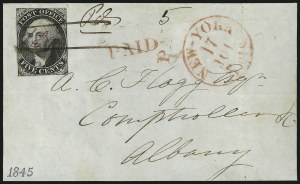 POST OFFICE
FIVE CENTS
Pd 5
PAID
NEW-YORK
17
A. C. Flagg Esq
Comptroller
Albany
1845